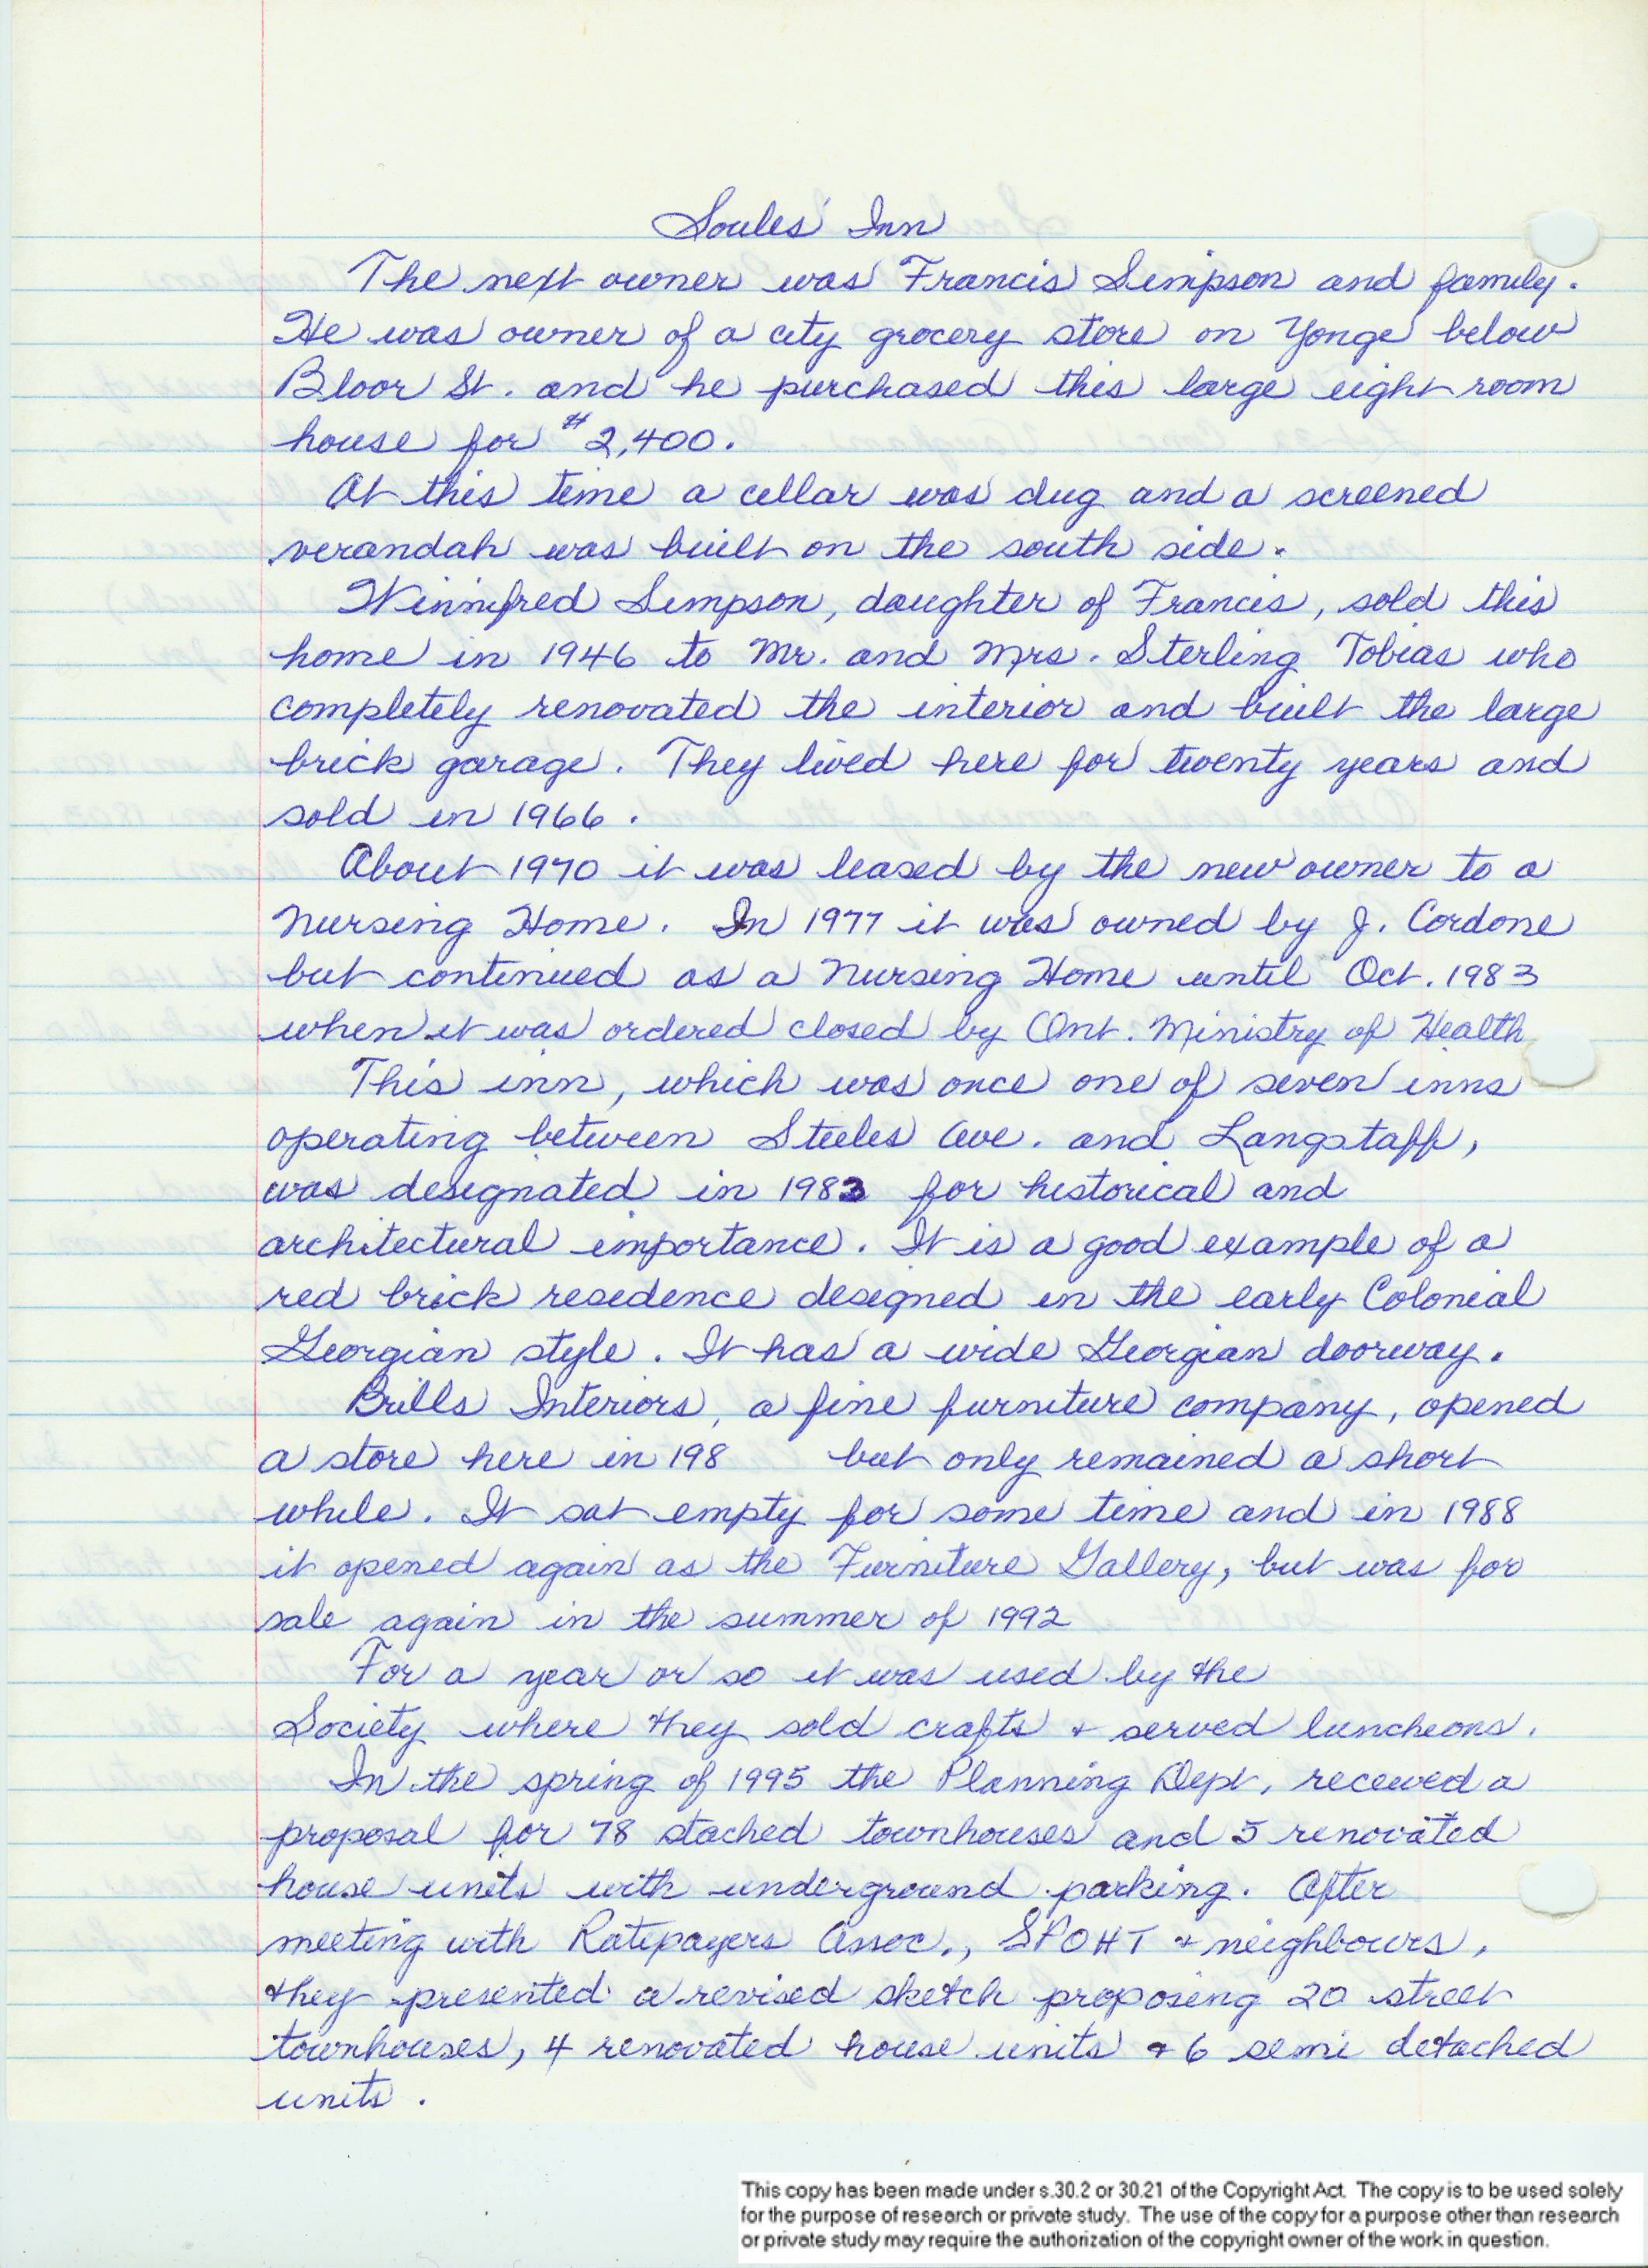 Soules' Inn
The next owner was Francis Simpson and family.
He was owner of a city grocery store on Yonge below
Bloor St. and he purchased this large eight room
house for $2,400.
At this time a cellar was dug and a screened
verandah was built on the south side.
Winnifred Simpson, daughter of Francis, sold this
home in 1946 to Mr. and Mrs. Sterling Tobias who
completely renovated the interior and built the large
brick garage. They lived here for twenty years and
sold in 1966.
About 1970 it was leased by the new owner to a
Nursing Home. In 1977 it was owned by J. Cordone
but continued as a Nursing Home until Oct. 1983
when it was ordered closed by Ont. Ministry of Health
This inn, which was once one of seven inns
operating between Steeles Ave. and Langstaff,
was designated in 1983 for historical and
architectural importance. It is a good example of a
red brick residence designed in the early Colonial
Georgian style. It has a wide Georgian doorway.
Brills Interiors, a fine furniture company, opened
a store here in 198 but only remained a short
while. It sat empty for some time and in 1988
it opened again as the Furniture Gallery, but was for
sale again in the summer of 1992
For a year or so it was used by the
Society where they sold crafts + served luncheons.
In the spring of 1995 the Planning Dept. received a
proposal for 78 stached townhouses and 5 renovated
house units with underground parking. After
meeting with Ratepayers Assoc., SPOHT + neighbours,
they presented a revised sketch proposing 20 street
townhouses, 4 renovated house units + 6 semi detached
units.
This copy has been made under s.30.2 or 30.21 of the Copyright Act. The copy is to be used solely
for the purpose of research or private study. The use of the copy for a purpose other than research
or private study may require the authorization of the copyright owner of the work in question.